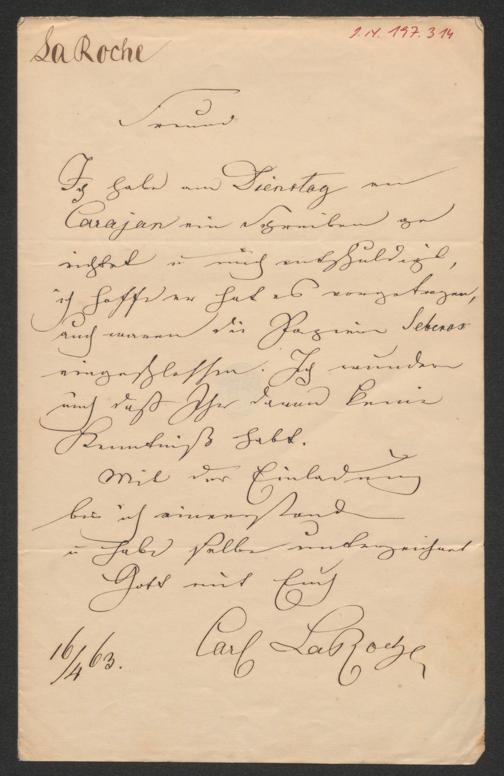 La Roche
I. N. 197.314
Freund
Ich habe am Dienstag an
Carajan ein Schreiben ge
richtet u mich entschuldigt,
ich hoffe er hat es vorgetragen,
auch waren die Papiere
eingeschlossen. Ich wundere
mich daß Ihr davon keine
Kenntniß habt.
Mit der Einladung
bin ich einverstand
u habe selbe unterzeichnet
Gott mit Euch
Carl LaRoche
16/4 63.